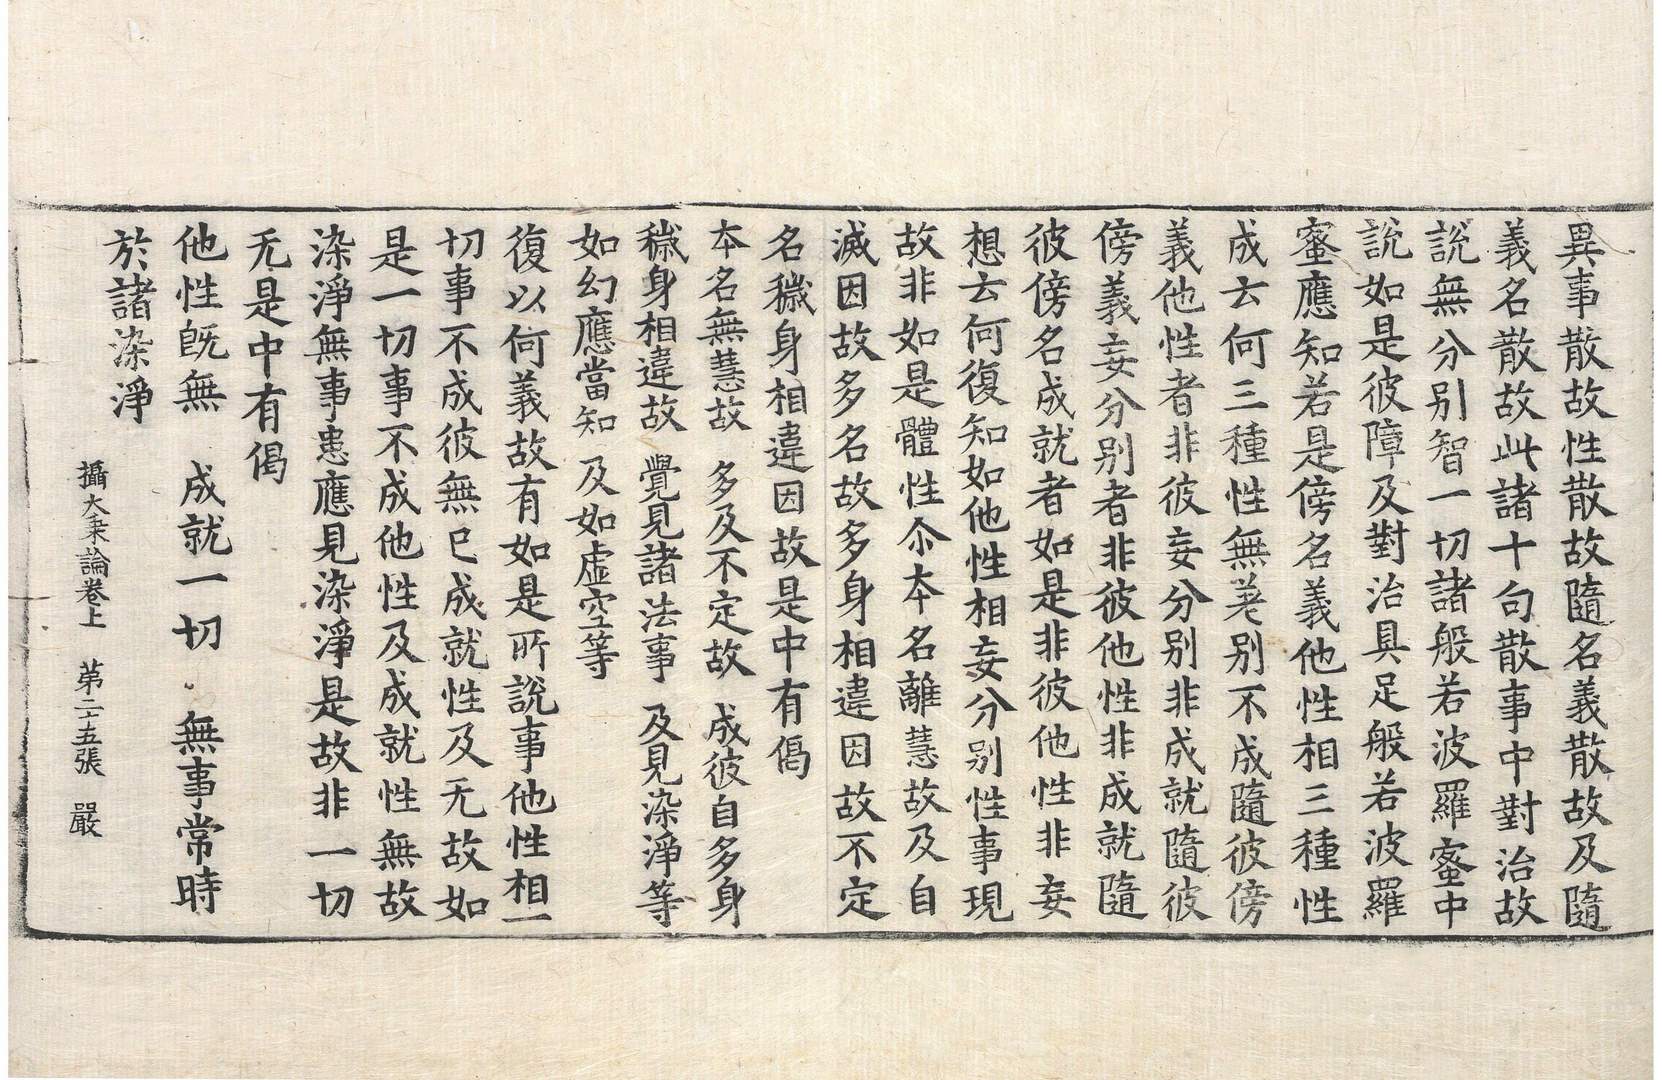 異事散故性散故隨名義散故及隨
義名散故此諸十句散事中對治故
說無分別智一切諸般若波羅蜜中
說如是彼障及對治具足般若波羅
蜜應知若是傍名義他性相三種性
成云何三種性無差別不成隨彼傍
義他性者非彼妄分別非成就隨彼
傍義妄分別者非彼他性非成就隨
彼傍名成就者如是非彼他性非妄
想云何復知如他性相妄分別性事現
故非如是體性尒本名離慧故及自
滅因故多名故多身相違因故不定
名穢身相違因故是中有偈
本名無慧故　多及不定故　成彼自多身
穢身相違故　覺見諸法事　及見染淨等
如幻應當知　及如虛空等
復以何義故有如是所說事他性相一
切事不成彼無已成就性及无故如
是一切事不成他性及成就性無故
染淨無事患應見染淨是故非一切
无是中有偈
他性旣無　成就一切　無事常時
於諸染淨
攝大乗論卷上　第二十五張　嚴